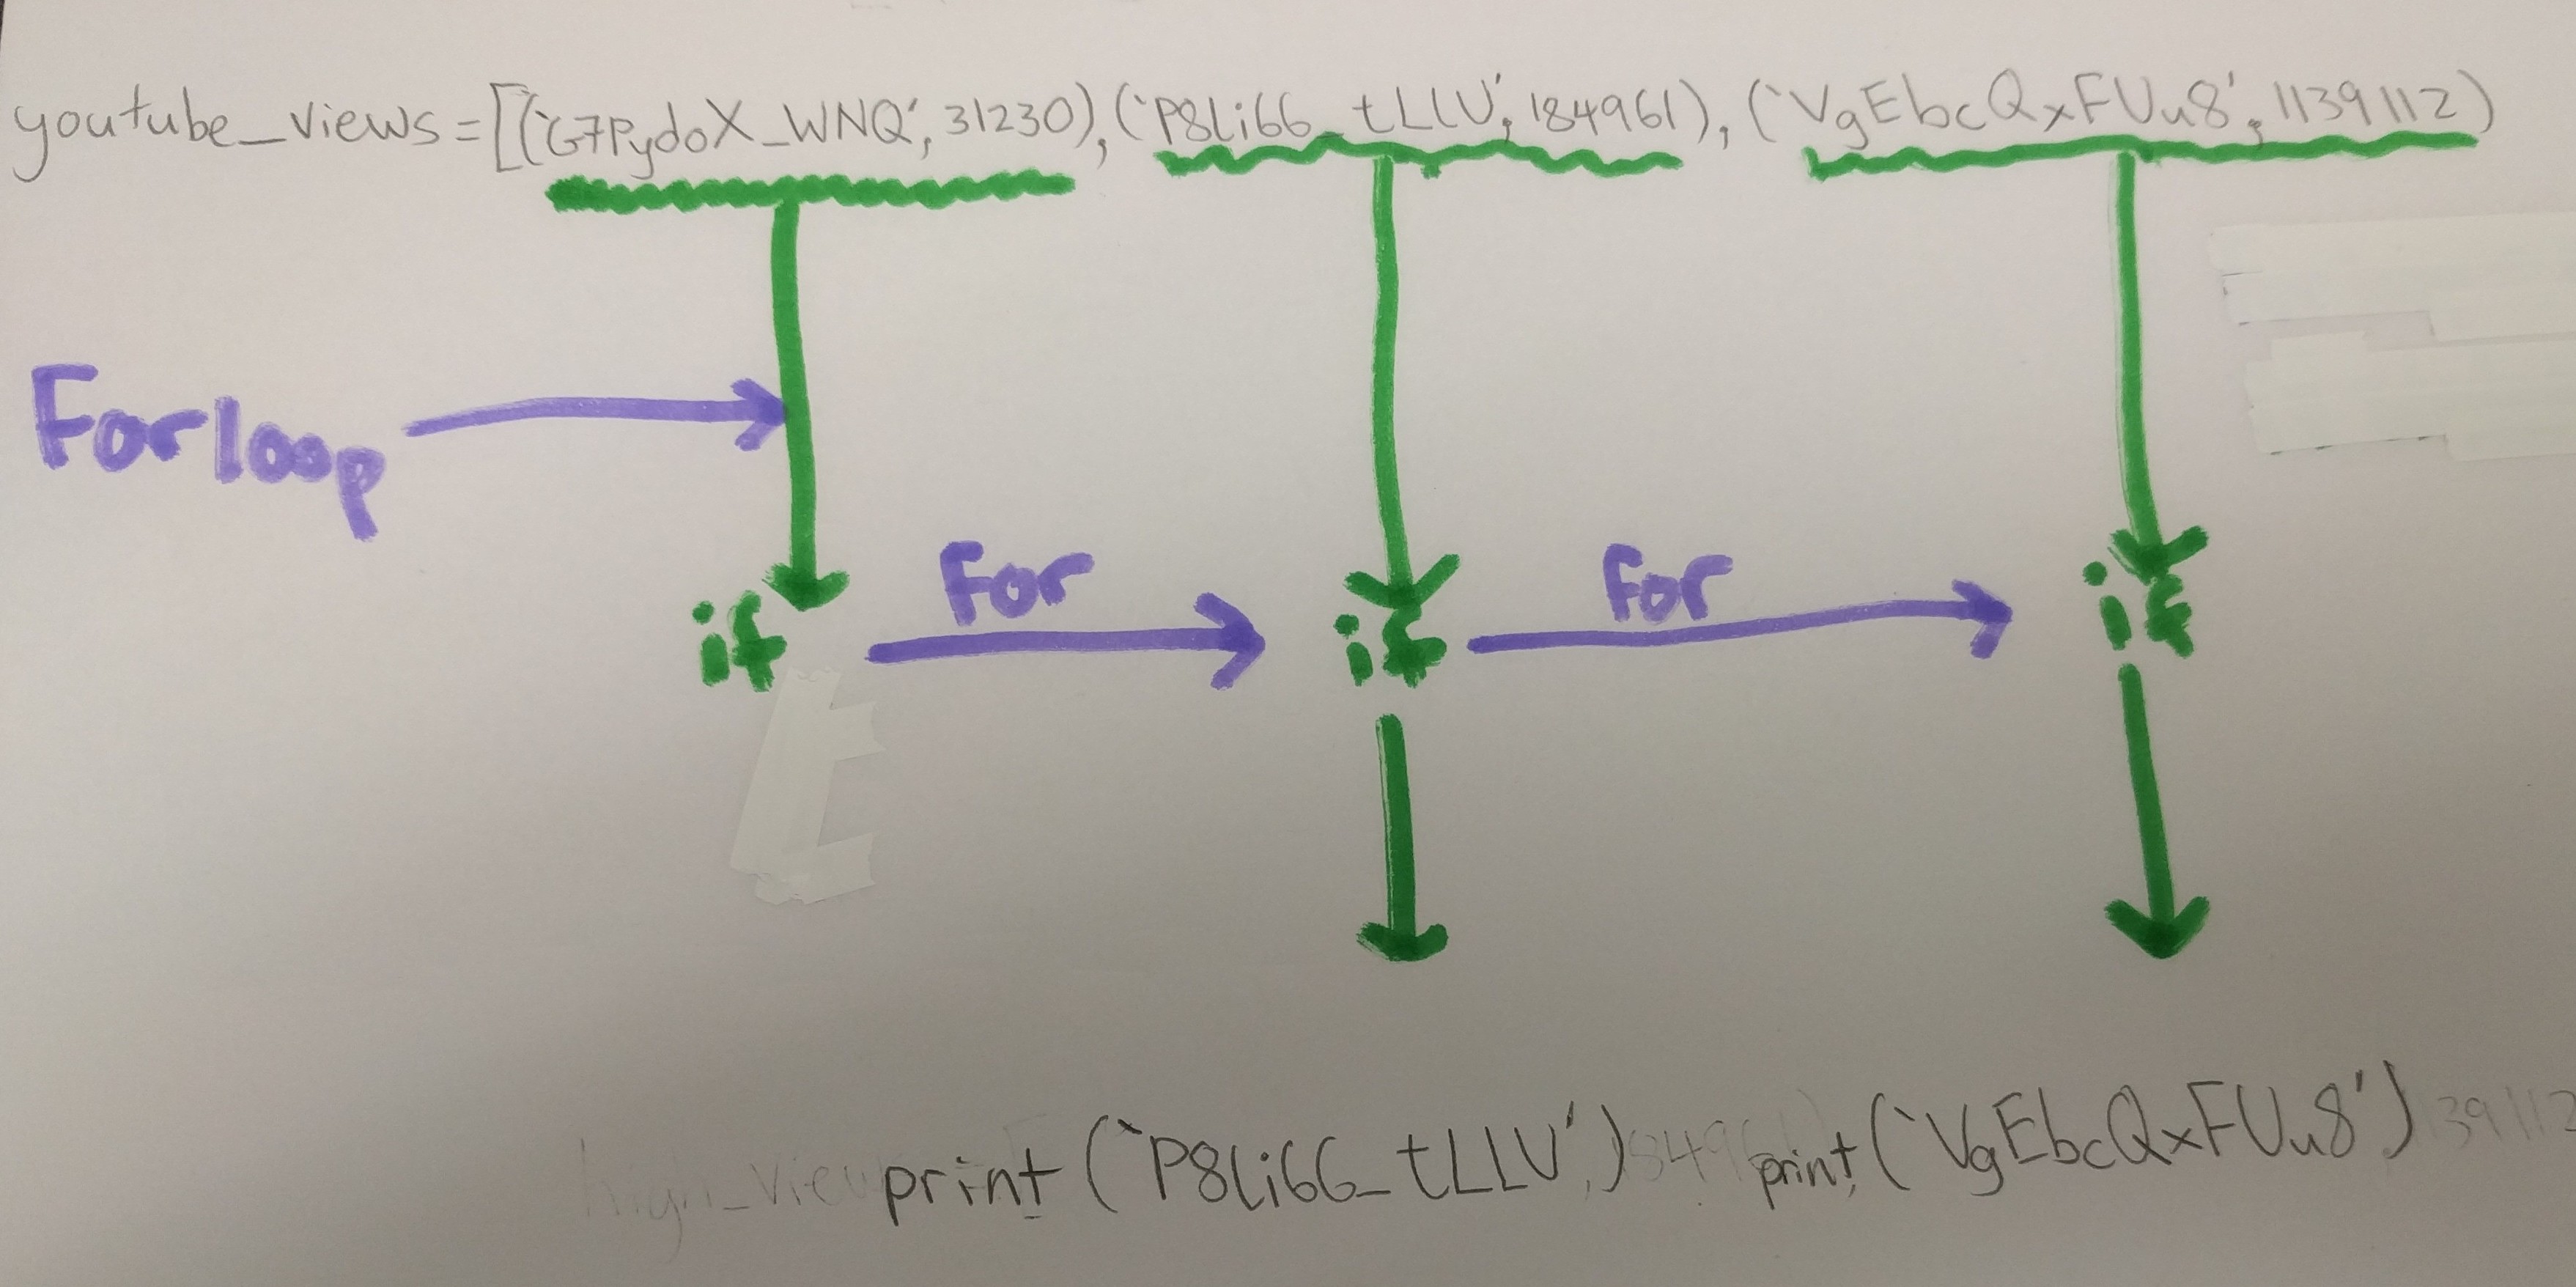 youtube_views=[('G7PydoX_WNQ', 31230), ('P8Li66_tLLU', 184961), ('VgEbcQxFUu8', 1139112)
For loop
For
For
if
if
if
print ('P8Li66_tLLU') print ('VgEbcQxFUu8') 39112